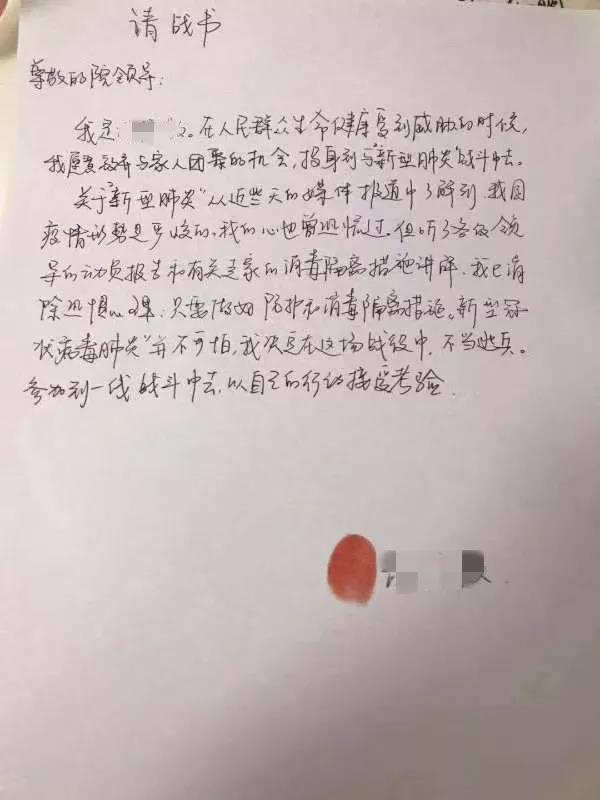 请战书
尊敬的院领导:
我是 。在人民群众生命健康受到威胁的时候,
我愿意放弃与家人团聚的机会,投身到与“新型肺炎”战斗中去。
关于“新型肺炎”从近些天的媒体报道中了解到我国
疫情形势是严峻的,我的心也曾恐慌过。但听了各级领
导的动员报告和有关专家的消毒隔离措施讲解,我已消
除恐惧心理,只需做好防护和消毒隔离措施。新型冠
状病毒肺炎”并不可怕,我决定在这场战役中,不当逃兵。
参加到一线战斗中去,以自己的行动接受考验.